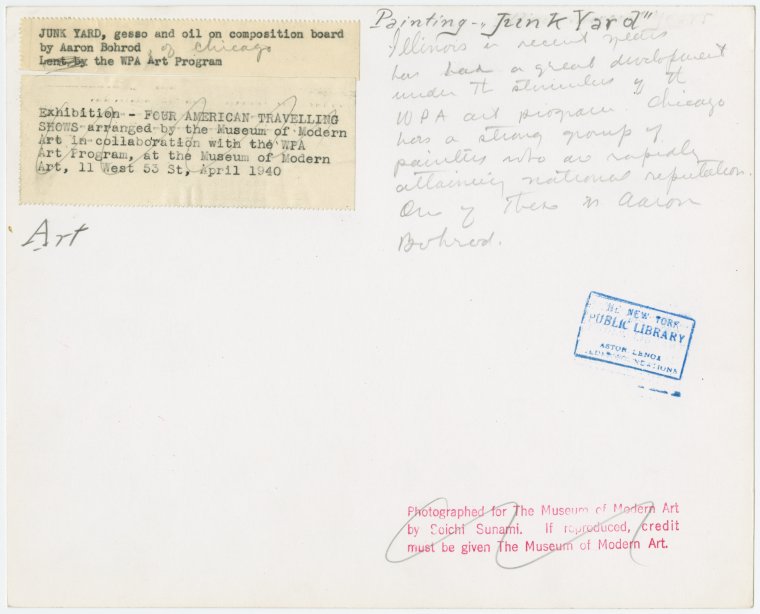 JUNK YARD, gesso and oil on composition board
by Aaron Bohrod of Chicago
Lent by the WPA Art Program
Exhibition - FOUR AMERICAN TRAVELLING
SHOWS arranged by the Museum of Modern
Art in collaboration with the WPA
Art Program, at the Museum of Modern
Art, 11 West 53 St, April 1940
Art
Painting - "Junk Yard"
Illinois in recent years
has had a great development
under th stimulus of th
WPA art program. Chicago
has a strong group of
painters who are rapidly
attaining national reputation.
One of these is Aaron
Bohrod.
THE NEW YORK
PUBLIC LIBRARY
ASTOR LENOX
Photographed for The Museum of Modern Art
by Soichi Sunami. If reproduced, credit
must be given The Museum of Modern Art.